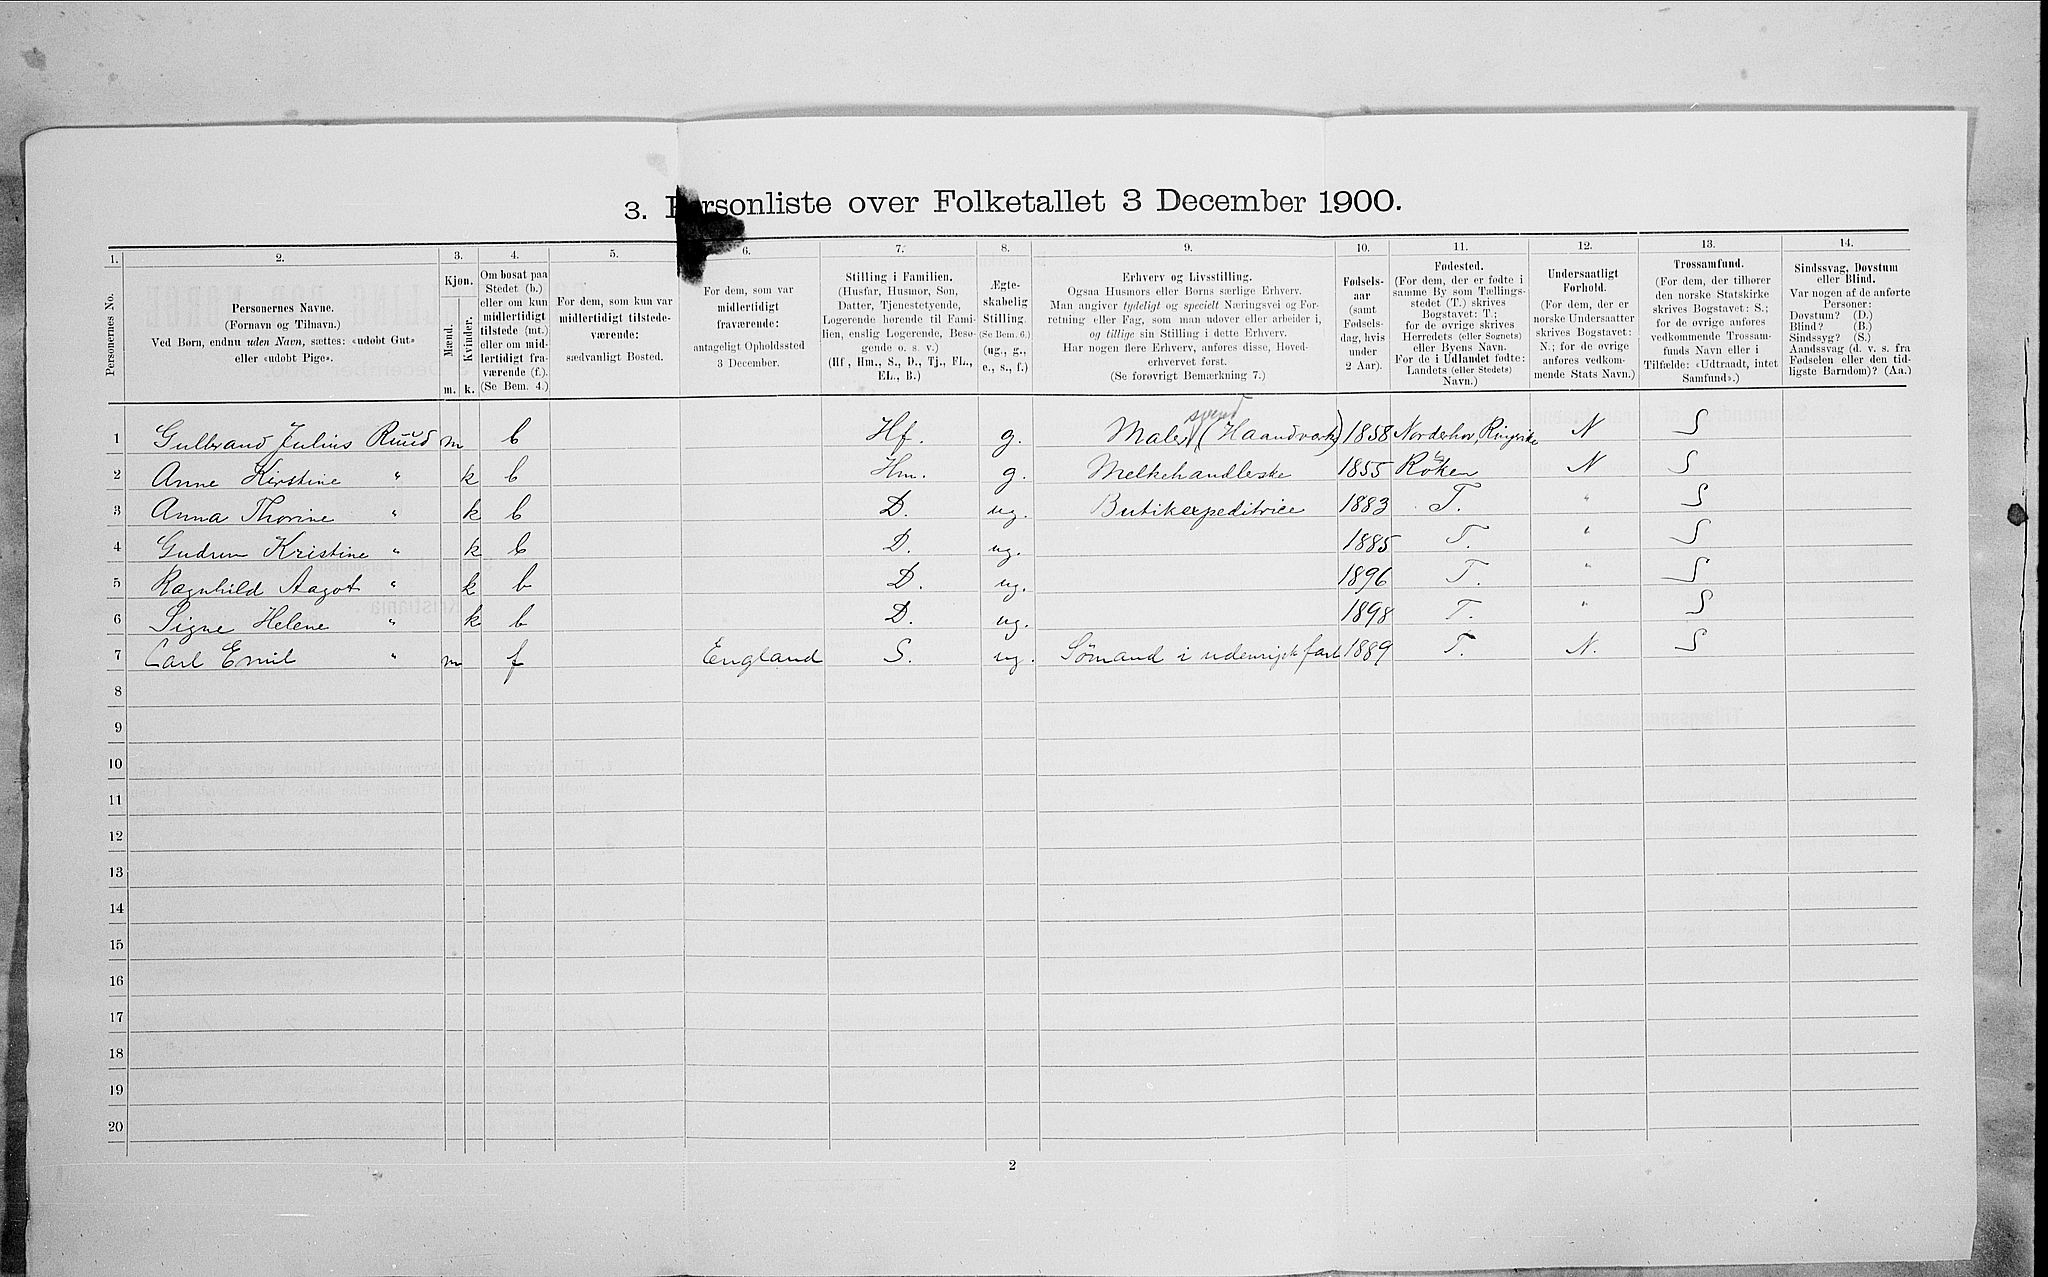 3. Personliste over Folketallet 3 December 1900.
1. 2. 3. 4. 5. 6. 7. 8. 9. 10. 11. 12. 13. 14.
Personernes No.
Personernes Navne.
(Fornavn og Tilnavn.)
Ved Børn, endnu uden Navn, sættes: «udøbt Gut»
eller «udøbt Pige».
Kjøn.
Mænd.
Kvinder.
m. k.
Om bosat paa
Stedet (b.)
eller om kun
midlertidigt
tilstede (mt.)
eller om mid-
lertidigt fra-
værende (f.)
(Se Bem. 4.)
For dem, som kun var
midlertidigt tilstede-
værende:
sædvanligt Bosted.
For dem, som var
midlertidigt
fraværende:
antageligt Opholdssted
3 December.
Stilling i Familien.
(Husfar, Husmor, Søn,
Datter, Tjenestetyende,
Logerende hørende til Fami-
lien, enslig Logerende, Besø-
gende o. s. v.)
(Hf., Hm., S., D., Tj., FL.,
EL., B.)
Ægte-
skabelig
Stilling.
(Se Bem. 6.)
(ug., g.,
e., s., f.)
Erhverv og Livsstilling.
Ogsaa Husmors eller Børns særlige Erhverv.
Man angiver tydeligt og specielt Næringsvei og For-
retning eller Fag, som man udøver eller arbeider i,
og tillige sin Stilling i dette Erhverv.
Har nogen flere Erhverv, anføres disse, Hoved-
erhvervet først.
(Se forøvrigt Bemærkning 7.)
Fødsels-
aar
(samt
Fødsels-
dag, hvis
under
2 Aar).
Fødested.
(For dem, der er fødte i
samme By som Tællings-
stedet (T.) skrives
Bogstavet: T;
for de øvrige skrives
Herredets (eller Sognets)
eller Byens Navn.
For de i Udlandet fødte:
Landets (eller Stedets)
Navn.)
Undersaatligt
Forhold.
(For dem, der er
norske Undersaatter
skrives Bogstavet:
N.; for de øvrige
anføres vedkom-
mende Stats Navn.)
Trossamfund.
(For dem, der tilhører
den norske Statskirke
skrives Bogstavet: S.;
for de øvrige anføres
vedkommende Trossam-
funds Navn eller i
Tilfælde: «Udtraadt, intet
Samfund».)
Sindssvag, Døvstum
eller Blind.
Var nogen af de anførte
Personer:
Døvstum? (D.)
Blind? (B.)
Sindssyg? (S.)
Aandssvag (d. v. s. fra
Fødselen eller den tid-
ligste Barndom)? (Aa.)
svend
1 Gulbrand Julius Ruud m b Hf. g. Maler (Haandverk) 1858 Norderhov, Ringerike N S
2 Anne Kirstine " k b Hm. g. Melkehandleske 1855 Röken N S
3 Anna Thorine " k b D. ug. Butikexpeditrice 1883 T. " S
4 Gudrun Kristine " k b D. ug. 1885 T. " S
5 Ragnhild Aagot " k b D. ug. 1896 T. " S
6 Signe Helene " k b D. ug. 1898 T. " S
7 Carl Emil " m f England S. ug. Sømand i udenrigsk fart 1889 T. N. S
8
9
10
11
12
13
14
15
16
17
18
19
20
2